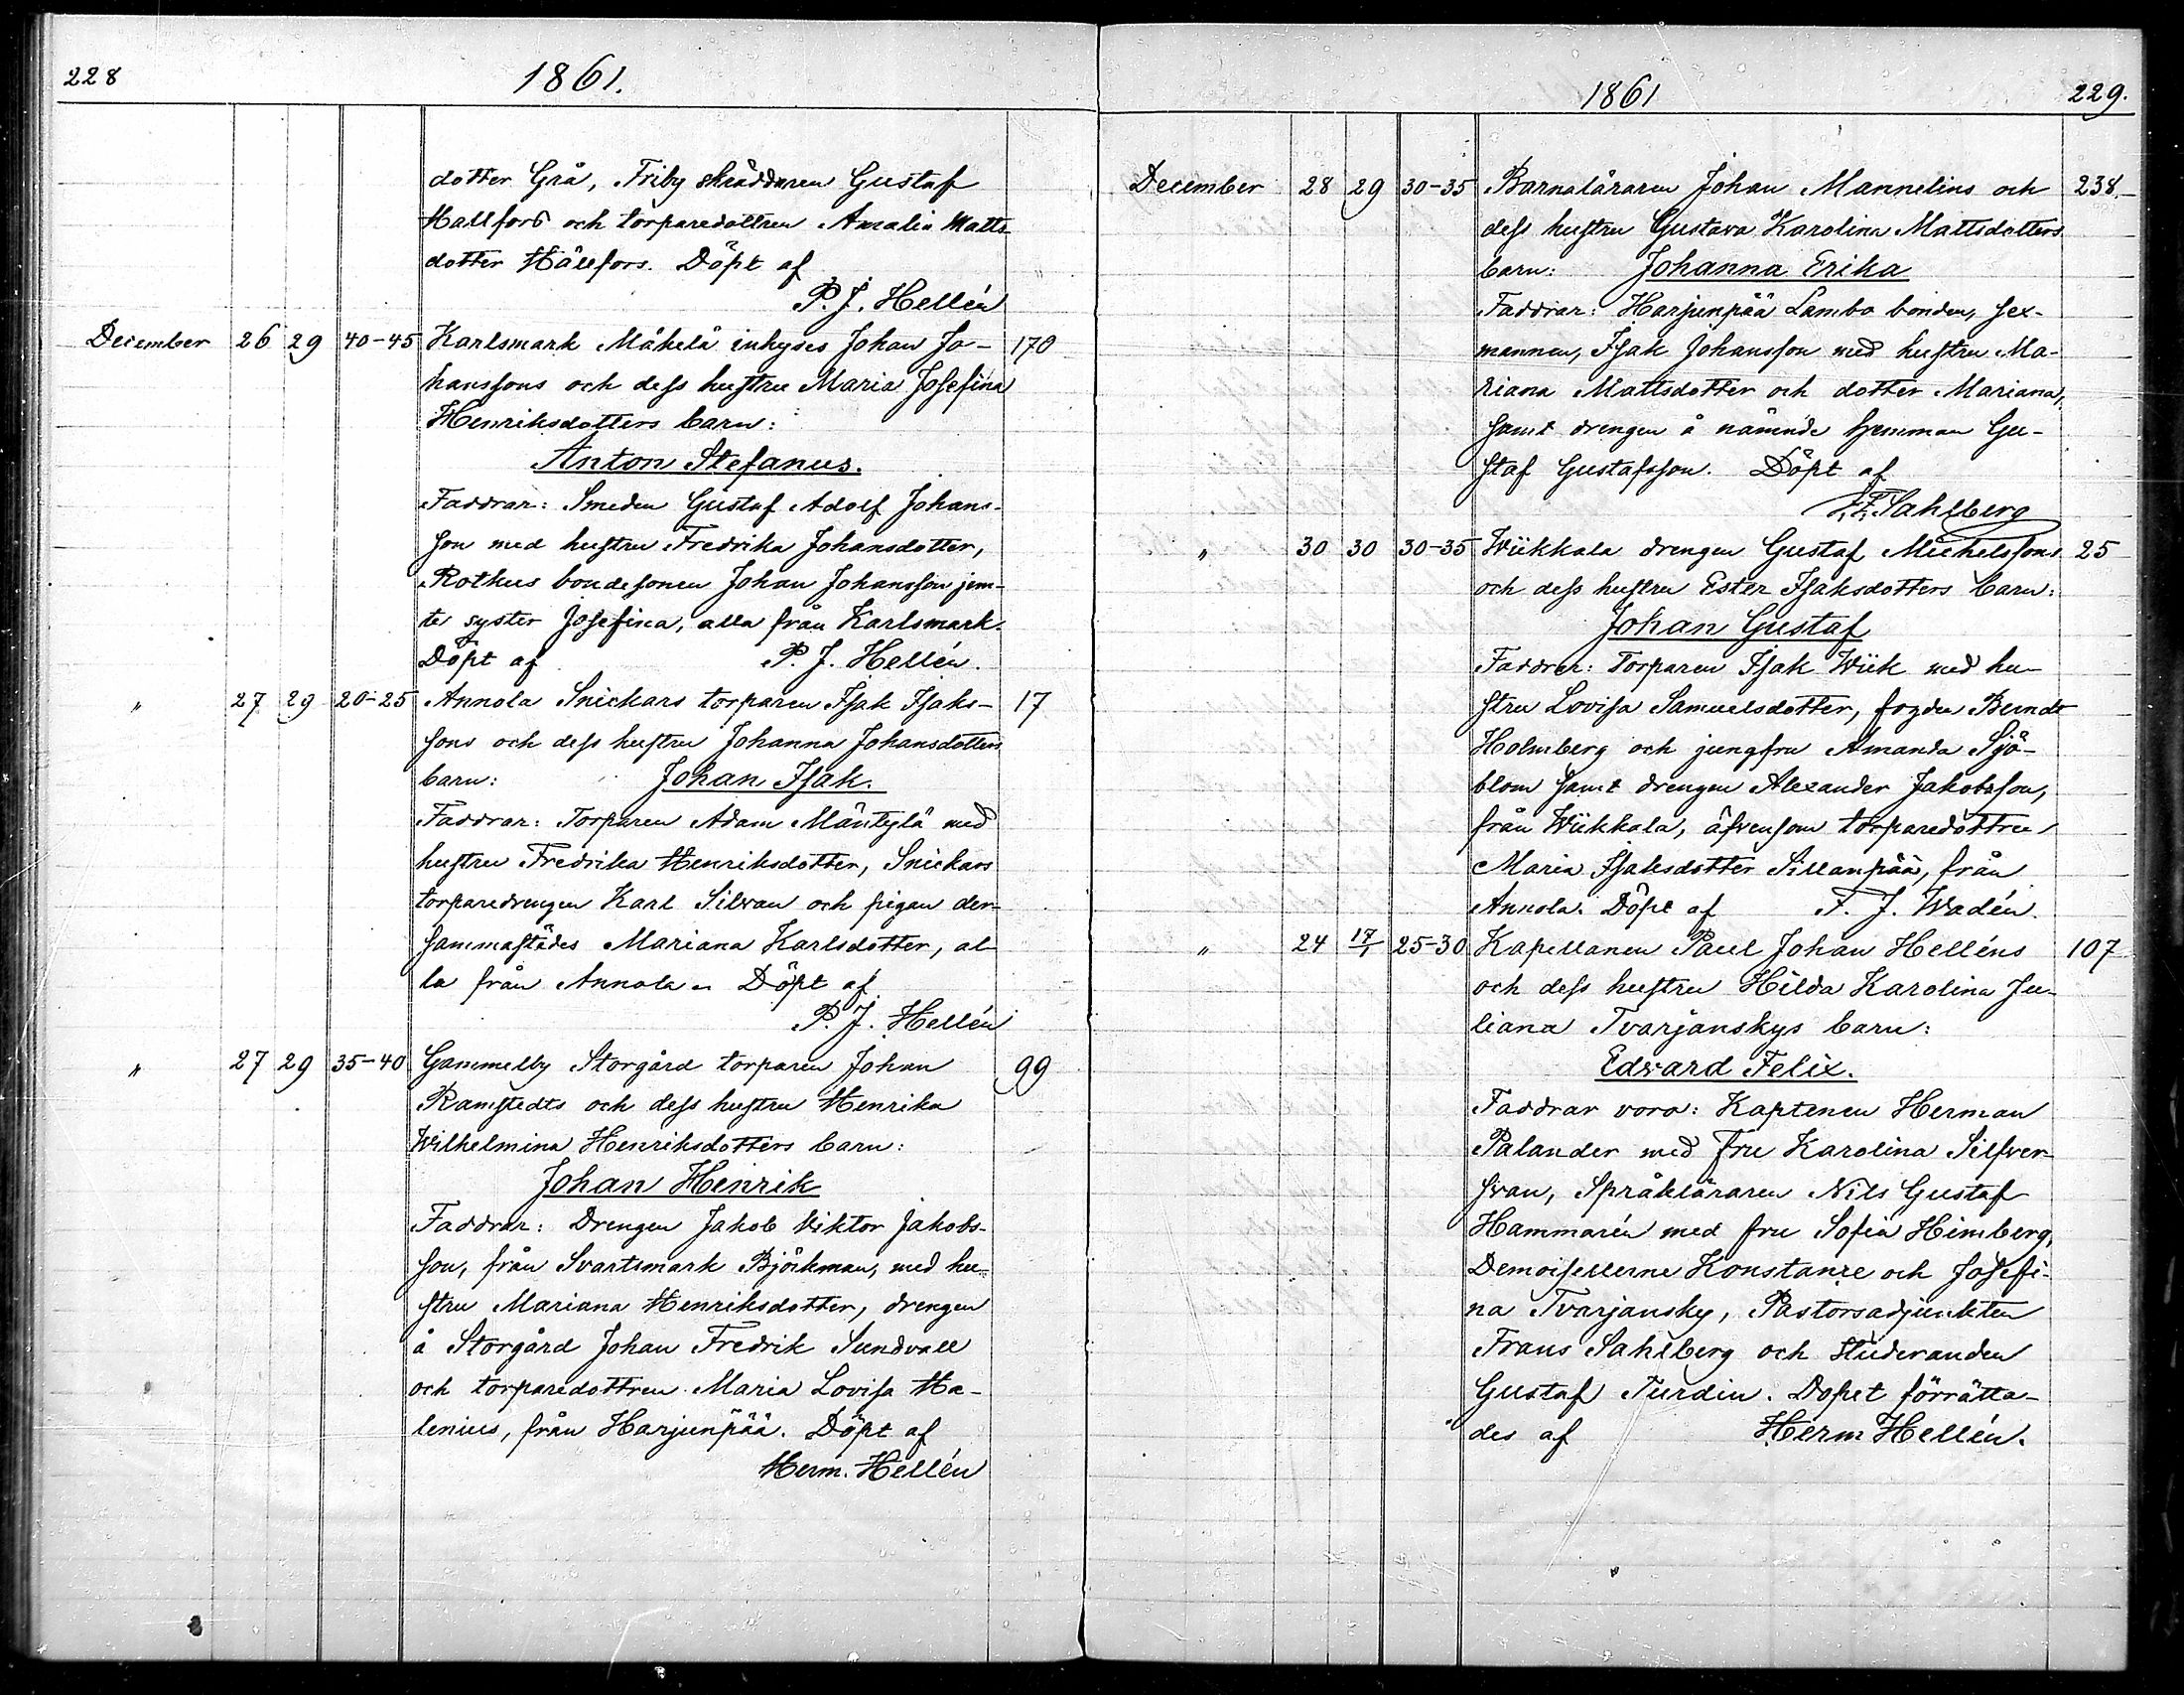 228
1861.
dotter Grå, Friby skräddaren Gustaf
Hallfors och torparedottren Amalia Matts
dotter Hällfors. Döpt af
P. J. Hellén
December 26 29 40-45 Karlsmark Mäkelä inhyses Johan Jo- 170
hanssons och dess hustru Maria Josefina
Henriksdotters barn:
Anton Stefanus.
Faddrar: Smeden Gustaf Adolf Johans-
son med hustru Fredrika Johansdotter,
Rothus bondesonen Johan Johansson jem-
te syster Josefina, alla från Karlsmark.
Döpt af P. J. Hellén.
" 27 29 20-25 Annola Snickars torparen Isak Isaks- 17
sons och dess hustru Johanna Johansdotters
barn: Johan Isak.
Faddrar: Torparen Adam Mäntylä med
hustru Fredrika Henriksdotter, Snickars
torparedrengen Karl Silvan och pigan der-
sammastädes Mariana Karlsdotter, al-
la från Annola. Döpt af
P. J. Hellén
" 27 29 35-40 Gammelby Storgård torparen Johan 99
Ramstedts och dess hustru Henrika
Wilhelmina Henriksdotters barn:
Johan Henrik
Faddrar: Drengen Jakob Viktor Jakobs-
son, från Svartsmark Björkman, med hu-
stru Mariana Henriksdotter, drengen
å Storgård Johan Fredrik Sundvall
och torparedottren Maria Lovisa Ha-
lenius, från Harjunpää. Döpt af
Herm. Hellén
1861
229.
December 28 29 30-35 Barnaläraren Johan Mannelins och 238.
dess hustru Gustava Karolina Mattsdotters
barn: Johanna Erika
Faddrar: Harjunpää Lambo bonden, sex-
mannen, Isak Johansson med hustru Ma-
riana Mattsdotter och dotter Mariana,
samt drengen å nämnde hemman Gu-
staf Gustafsson. Döpt af
F. F. Sahlberg
" 30 30 30-35 Wiikkala drengen Gustaf Michelssons 25
och dess hustru Ester Isaksdotters barn:
Johan Gustaf
Faddrar: Torparen Isak Wiik med hu-
stru Lovisa Samuelsdotter, fogden Berndt
Holmberg och jungfru Amanda Sjö-
blom samt drengen Alexander Jakobsson,
från Wiikkala, äfvensom torparedottren
Maria Isaksdotter Sillanpää, från
Annola. Döpt af F. J. Wadén.
" 24 17/1 25-30 Kapellanen Paul Johan Helléns 107
och dess hustru Hilda Karolina Ju-
liana Tvarjanskys barn:
Edvard Felix.
Faddrar voro: Kaptenen Herman
Palander med fru Karolina Silfver-
svan, Språkläraren Nils Gustaf
Hammarén med fru Sofia Himberg,
Demoisellerne Konstance och Josefi-
na Tvarjansky, Pastorsadjunkten
Frans Sahlberg och studeranden
Gustaf Turdin. Dopet förrätta-
des af Herm Hellén.